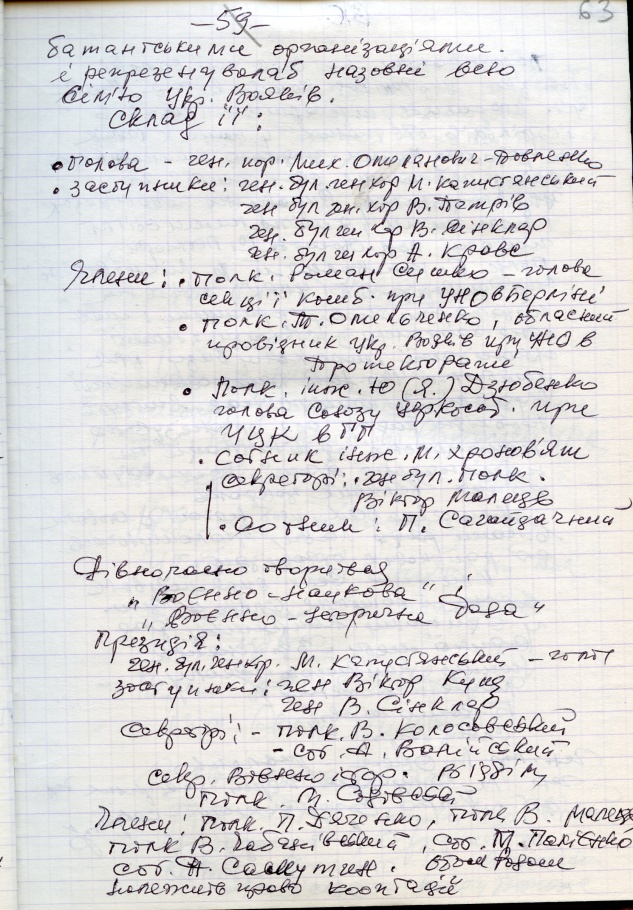 —59—
63
батантськими організаціями.
і репрезентувала б назовні всю
сім'ю Укр. Вояків.
Склад її:
• Голова – ген. пор. Мих. Омелянович-Павленко
• Заступники: ген. бул. ген хор М. Капустянський
ген бул ген. хор В. Петрів
ген. бул ген хор В. Сінклар
ген. бул ген хор А. Кравс
Члени: • полк. Роман Сушко – голова
секції комб. при УНО в Берліні
• полк. Т. Омельченко, обласний
провідник Укр. Вояків при УНО в
Протектораті
• Полк. інж. Ю (Я.) Дзюбенко
голова Союзу при
УЦК в ГГ
• Сотник інж. М. Хронов'ят
Секретарі: • ген бул. полк.
Віктор Малець
• Сотник: П. Сагайдачний
Рівночасно твориться
„Воєнно-Наукова" і
„Воєнно-історична Рада"
Президія:
ген. бул. ген хор. М. Капустянський –
заступники: ген Віктор Кущ
ген В. Сінклар
Секретарі: – полк. В. Колосовський
– сот. А.
секр. Воєнно істор. відділу
полк. М. Садовський
Члени: полк. П. Дяченко, полк В. Малець
полк В. , сот. М.
сот. А. . обом Радам
належить право кооптації